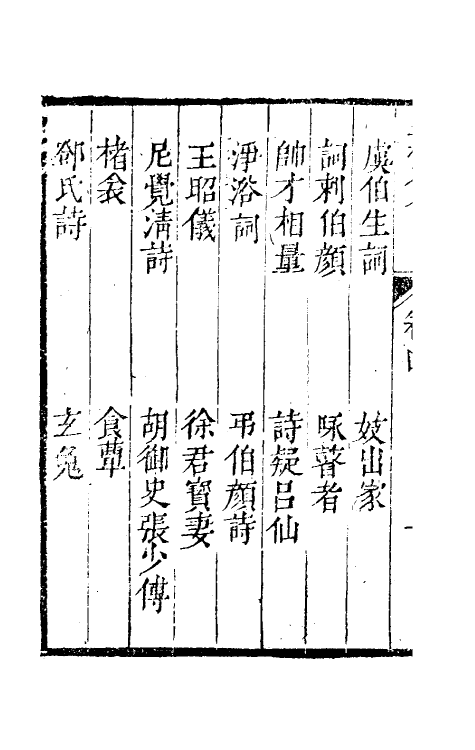 虞伯生詞　妓出家
詞刺伯顏　咏瞽者
帥才相量　詩疑呂仙
淨浴詞　弔伯顏詩
王昭儀　徐君寶妻
尼覺淸詩　胡御史張少傅
楮衾　食蕈
郤氏詩　玄兔